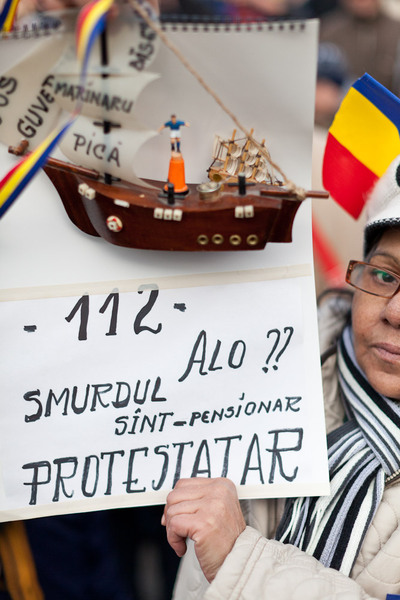 GUVE
MARINARU
PICĂ
- 112 -
ALO ??
SMURDUL
SÎNT-PENSIONAR
PROTESTATAR